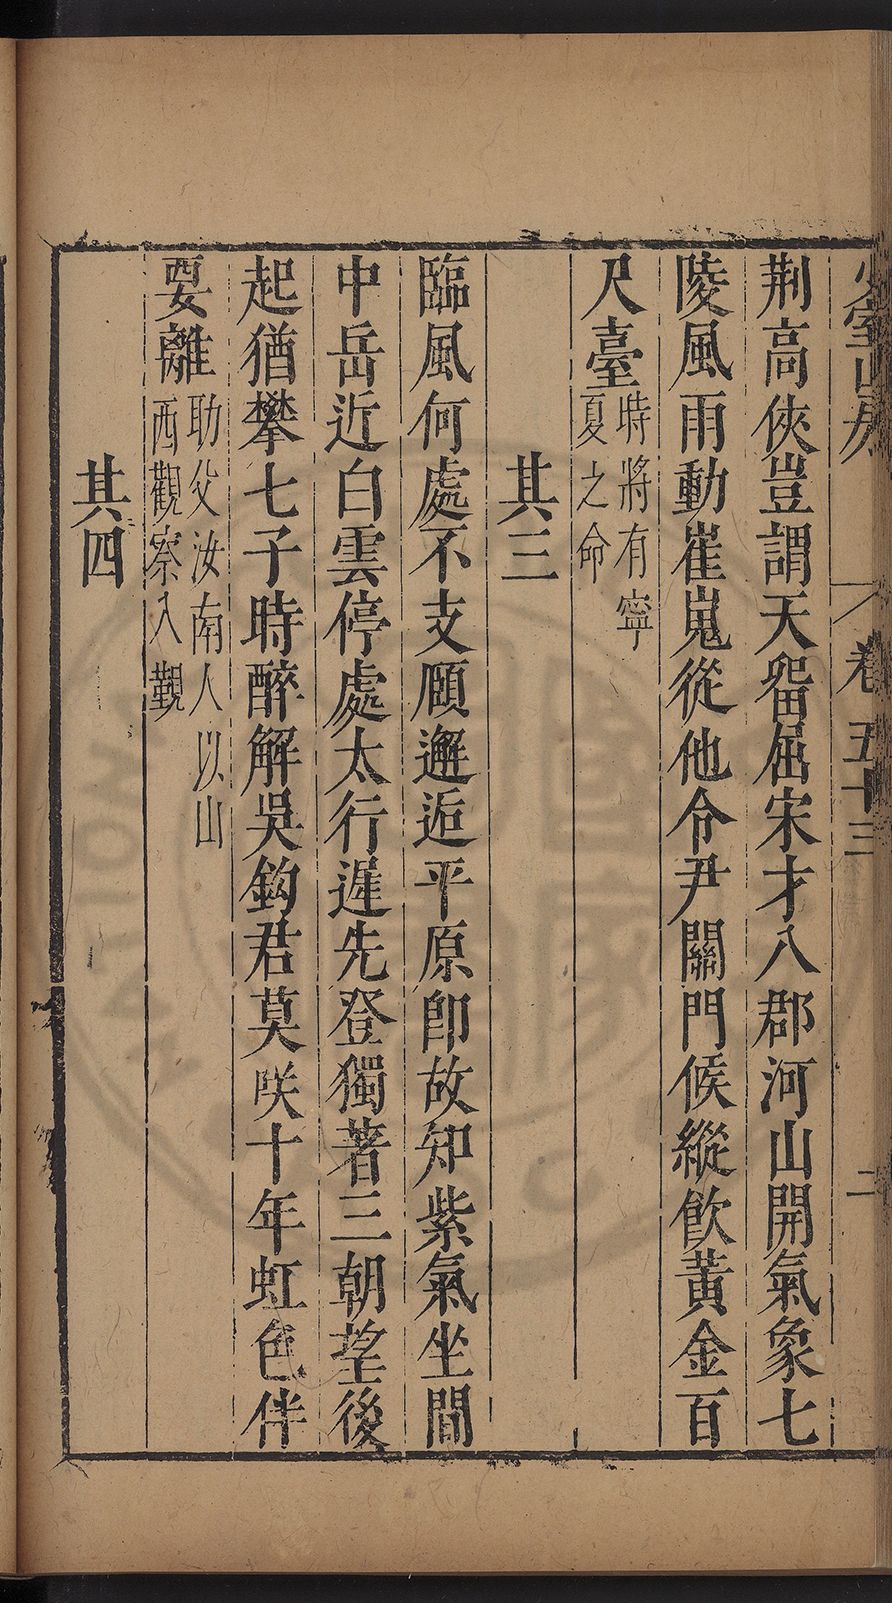 少室山房
卷五十三
二
荆高俠豈謂天畱屈宋才八郡河山開氣象七
陵風雨動崔嵬從他令尹關門候縱飲黄金百
尺臺時將有寧
夏之命
其三
臨風何處不支頤邂逅平原卽故知紫氣坐間
中岳近白雲停處太行遲先登獨著三朝望後
起猶攀七子時醉解吳鈎君莫咲十年虹色伴
要離助父汝南人以山
西觀察入覲
其四